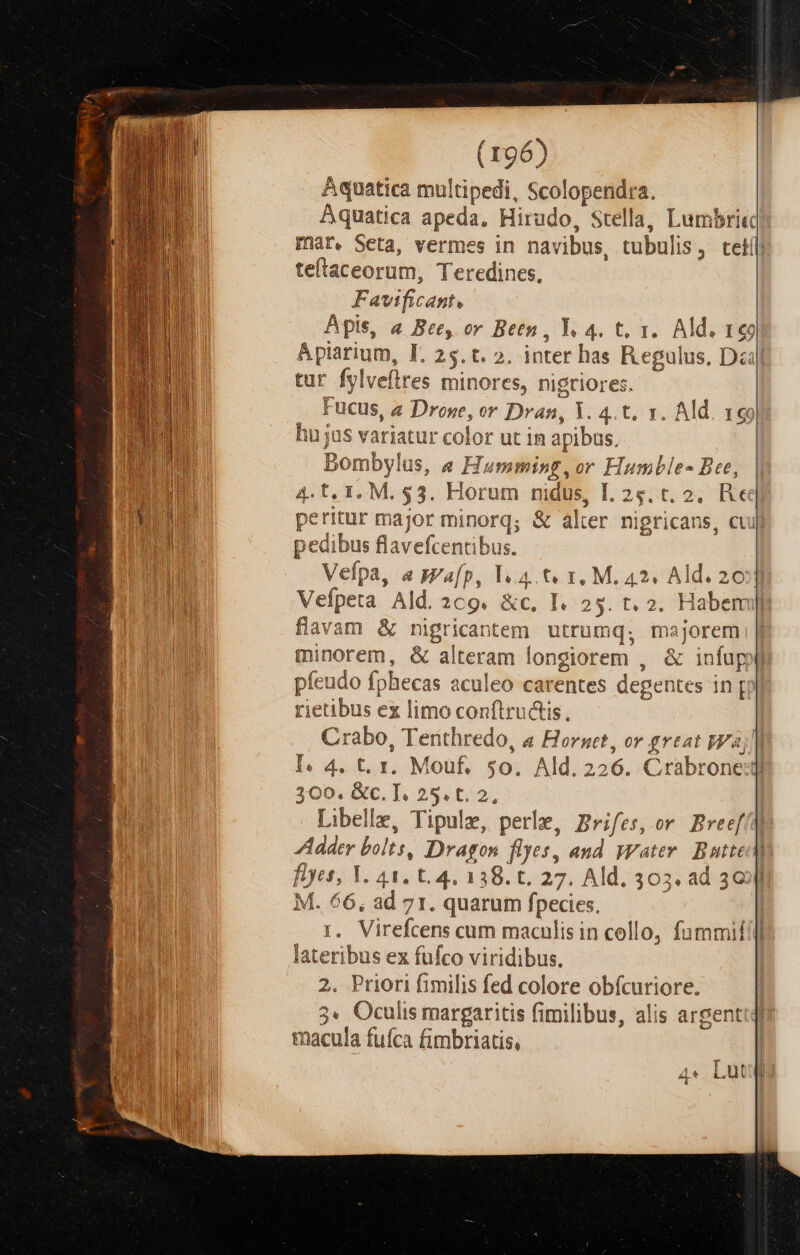 (196)
Aquatica multipedi, Scolopendra.
Aquatica apeda, Hirudo, Stella,
mar, Seta, vermes in navibus, tubulis,
teſtaceorum, Teredines.
Favificant.
Apis, a Bee, or Been, I. 4. t. 1. Ald.
Apiarium, I. 25. t. 2. inter has Regulus.
tur ſylveſtres minores, nigriores.
Fucus, a Drone, or Dran, I. 4. t. 1. Ald.
hujus variatur color ut in apibus.
Bombylus, a Humming, or Humble-Bee,
4. t. 1. M. 53. Horum nidus, I. 25. t. 2.
peritur major minorq; & alter nigricans,
pedibus flaveſcentibus.
Veſpa, a Waſp, I. 4. t. 1. M. 42. Ald.
Veſpeta Ald. 209. &c, I. 25. t. 2.
flavam & nigricantem utrumq; majorem
minorem, & alteram longiorem, &
pſeudo ſphecas aculeo carentes degentes in
rietibus ex limo conſtructis.
Crabo, Tenthredo, a Hornet, or great
I. 4. t. 1. Mouf. 50. Ald. 226.
300. &c. I. 25. t. 2.
Libellæ, Tipulæ, perlæ, Briſes, or
Adder bolts, Dragon flyes, and Water
flyes, I. 41. t. 4. 138. t. 27. Ald. 303. ad
M. 66. ad 71. quarum ſpecies.
1. Vireſcens cum maculis in collo,
lateribus ex fuſco viridibus.
2. Priori ſimilis ſed colore obſcuriore.
3. Oculis margaritis ſimilibus, alis
macula fuſca fimbriatis.
4.